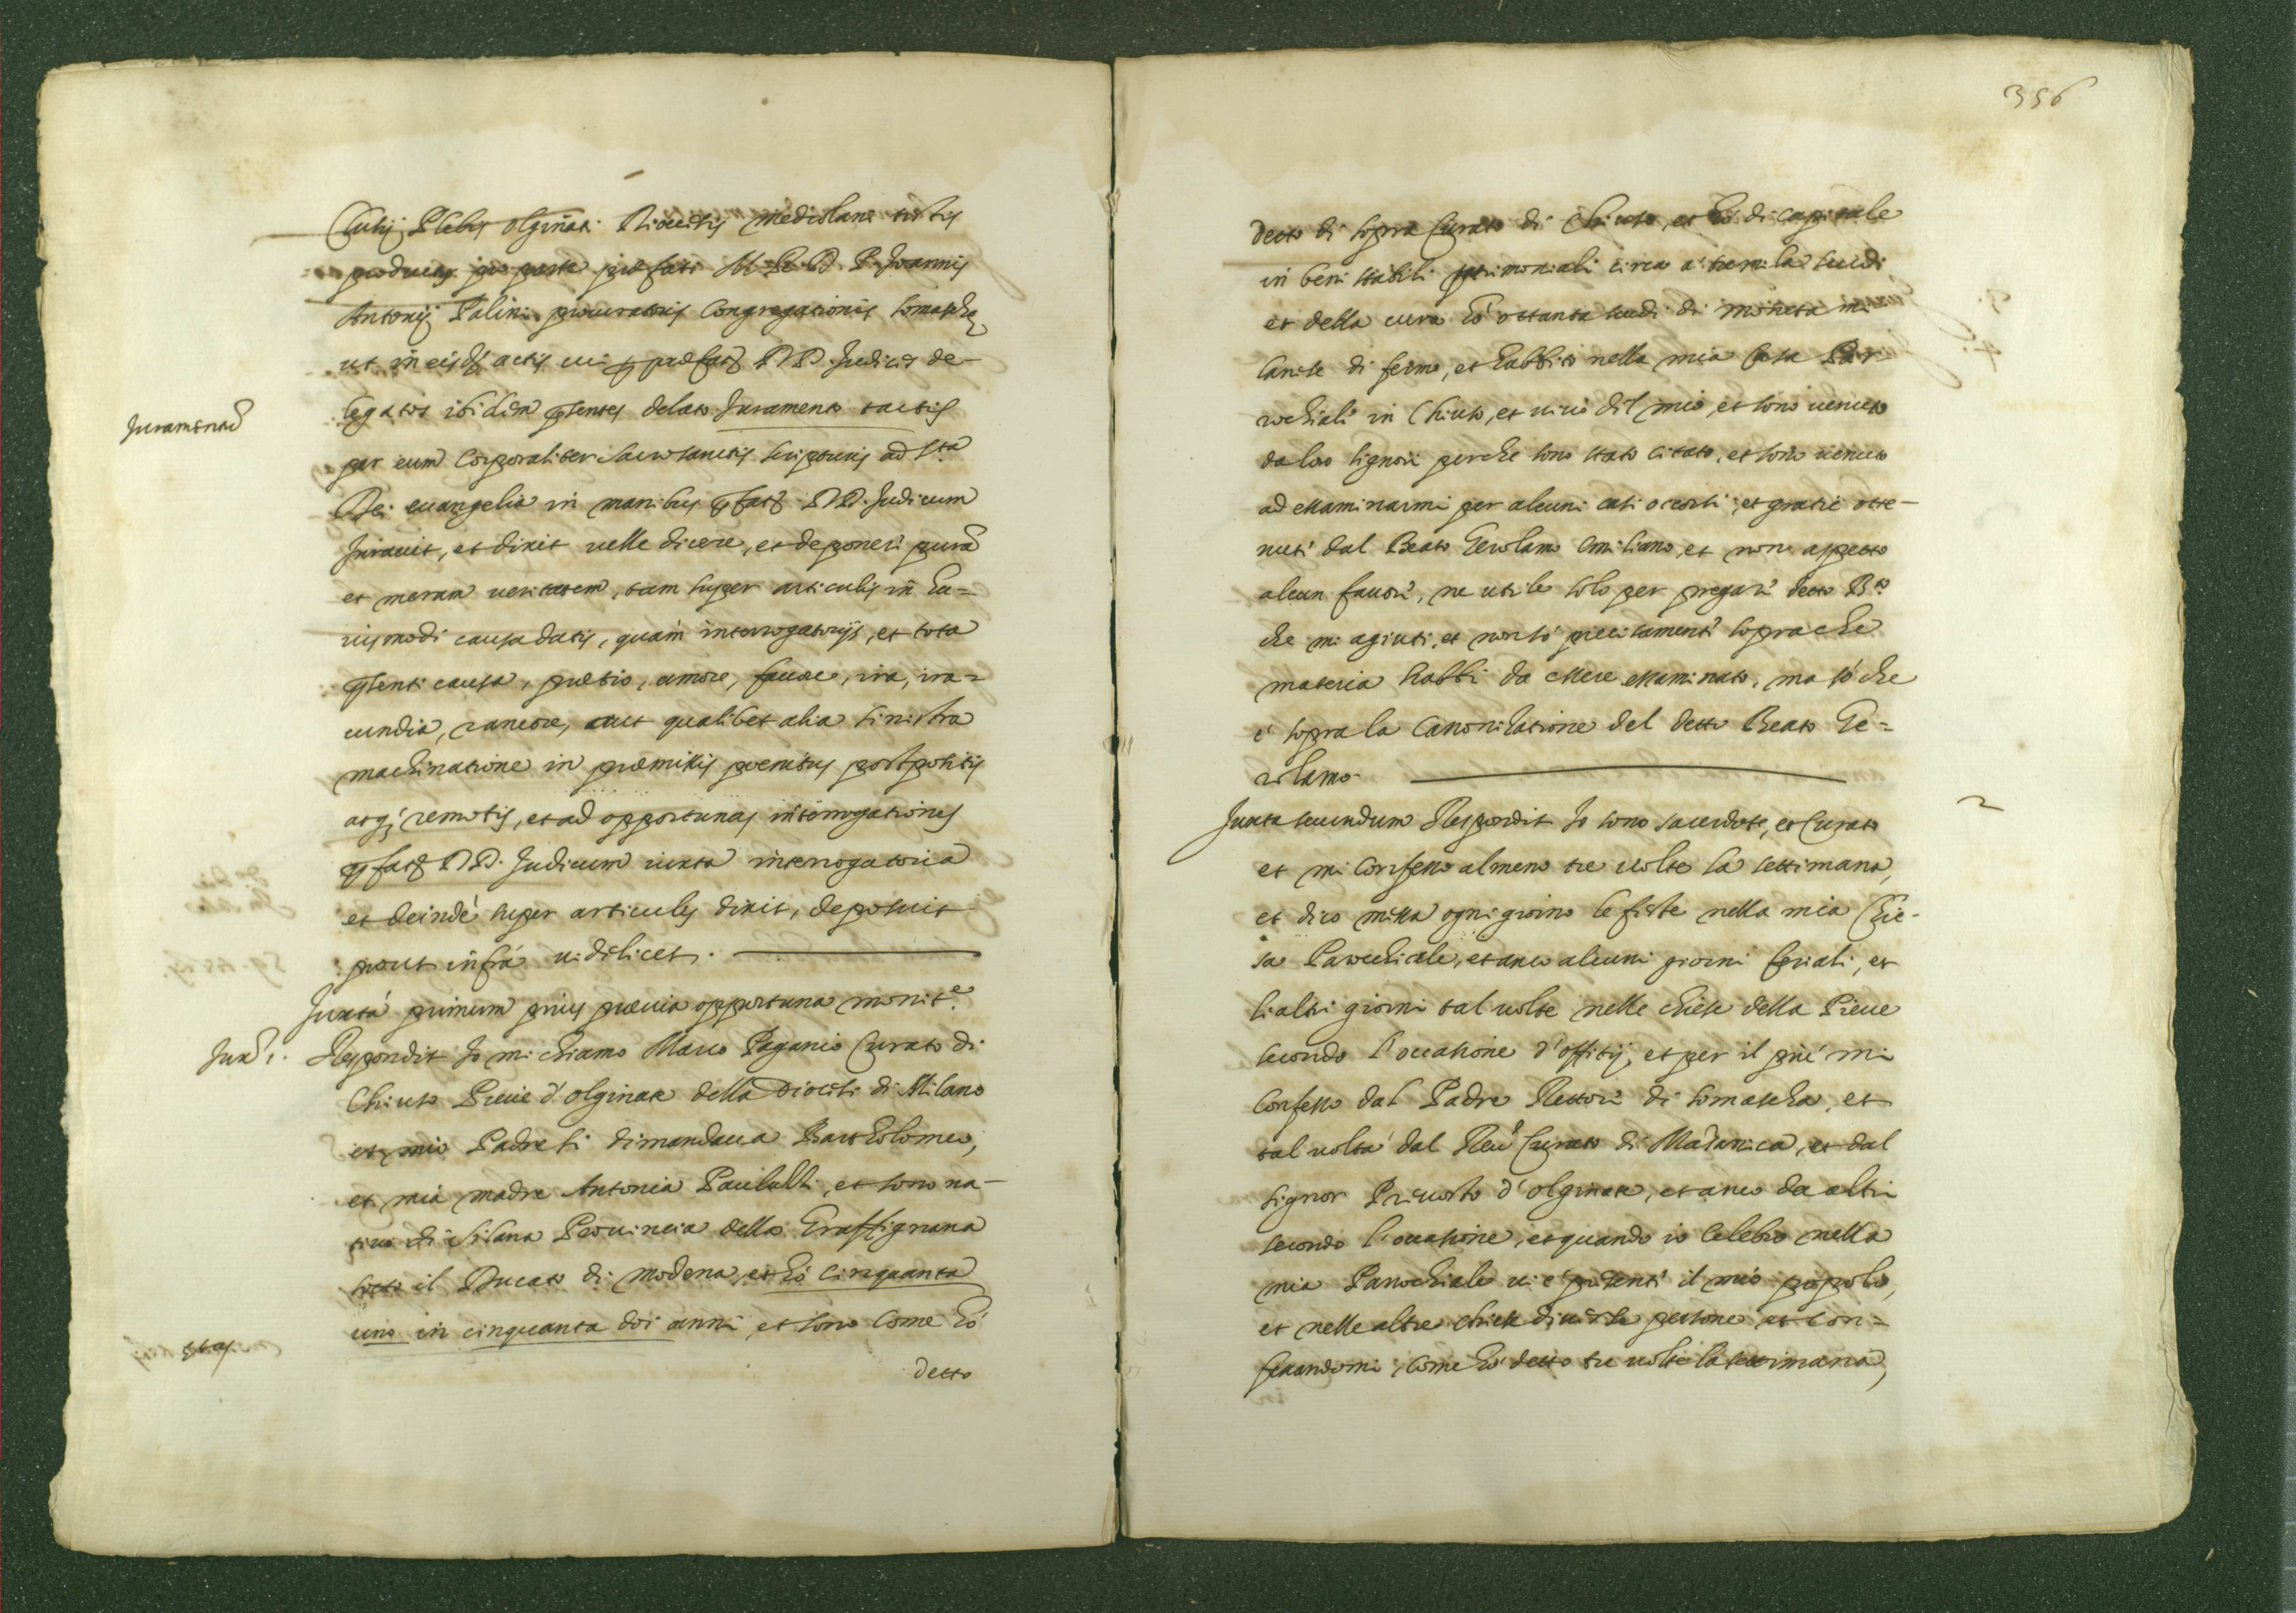 Clutij Plebis Olginati Diocesis Mediolani testis
producens pro parte præfati M. R. D. P. Joannis
Antonij Palini procuratoris Congregationis somaschæ
ut in eisdem actis cui præfati DD. Judices de-
legatos ibidem presentes delato Juramento tactis
Juramentum
per eum Corporaliter Sacrosanctis scripturis ad sta
Dei euangelia in manibus præfatorum DD. Judicum
Jurauit, et dixit velle dicere, et deponere puram
et meram veritatem, tam super articulis in hu=
iusmodi causa datis, quàm interrogatorijs, et tota
presenti causa, prætio, amore, fauore, ira, ira=
cundia, rancore, aut qualibet alia sinistra
machinatione in præmissis pœnitus postpositis
atque remotis, et ad opportunas interrogationes
præfatorum DD. Judicum iuxta interrogatoria
et deindè super articulis dixit, deposuit
prout infrà videlicet.
Juxtà primum prius præuia opportuna monite.
Juxa 1. Respondit Io mi chiamo Marco Paganio Curato di
Chiuso Pieue d'olginate della Diocesi di Milano
et mio Padre si dimandaua Bartholomeo,
et mia madre Antonia, et sono na-
tiuo di Silana Prouincia della Graffignana
sotto il Ducato di Modena, et hò cinquanta
uno in cinquanta doi anni, et sono come hò
ętas
detto
356
detto di sopra Curato di Chiuso, et hò di capitale
in beni stabili patrimoniali circa à tremila scudi
et della cura hò ottanta scudi di moneta mi
lanese di fermo, et habbito nella mia Casa Par
rochiali in Chiuso, et viuo dil mio, et sono venuto
da loro signori perche sono stato citato, et sono venuto
ad essaminarmi per alcuni casi occorsi, et gratie otte-
nuti dal Beato Gerolamo Emiliano, et non aspetto
alcun fauore, ne utile solo per pregare detto Bto
che mi agiuti, et non sò precisamenti sopra che
materia habbi da essere essaminato, ma sò che
è sopra la Canonizatione del detto Beato Ge=
rolamo.
2
Juxta secundum Respondit Io sono sacerdote, et Curato
et mi confesso almeno tre volte la settimana,
et dico missa ogni giorno le feste nella mia Chie-
sa Parochiale, et anco alcuni giorni feriali, et
li altri giorni tal volte nelle chiese della Pieue
secondo l'occasione d'offitij, et per il più mi
confesso dal Padre Rettore di somascha, et
tal volta dal Reu.o Curato di Maianica, et dal
signor Preuosto d'olginate, et anco da altri
secondo l'occasione, et quando io celebro nella
mia Parrochiale vi è presenti il mio popolo,
et nelle altre chiese diuerse persone et con=
fessandomi, come hò detto tre volte la settimana,